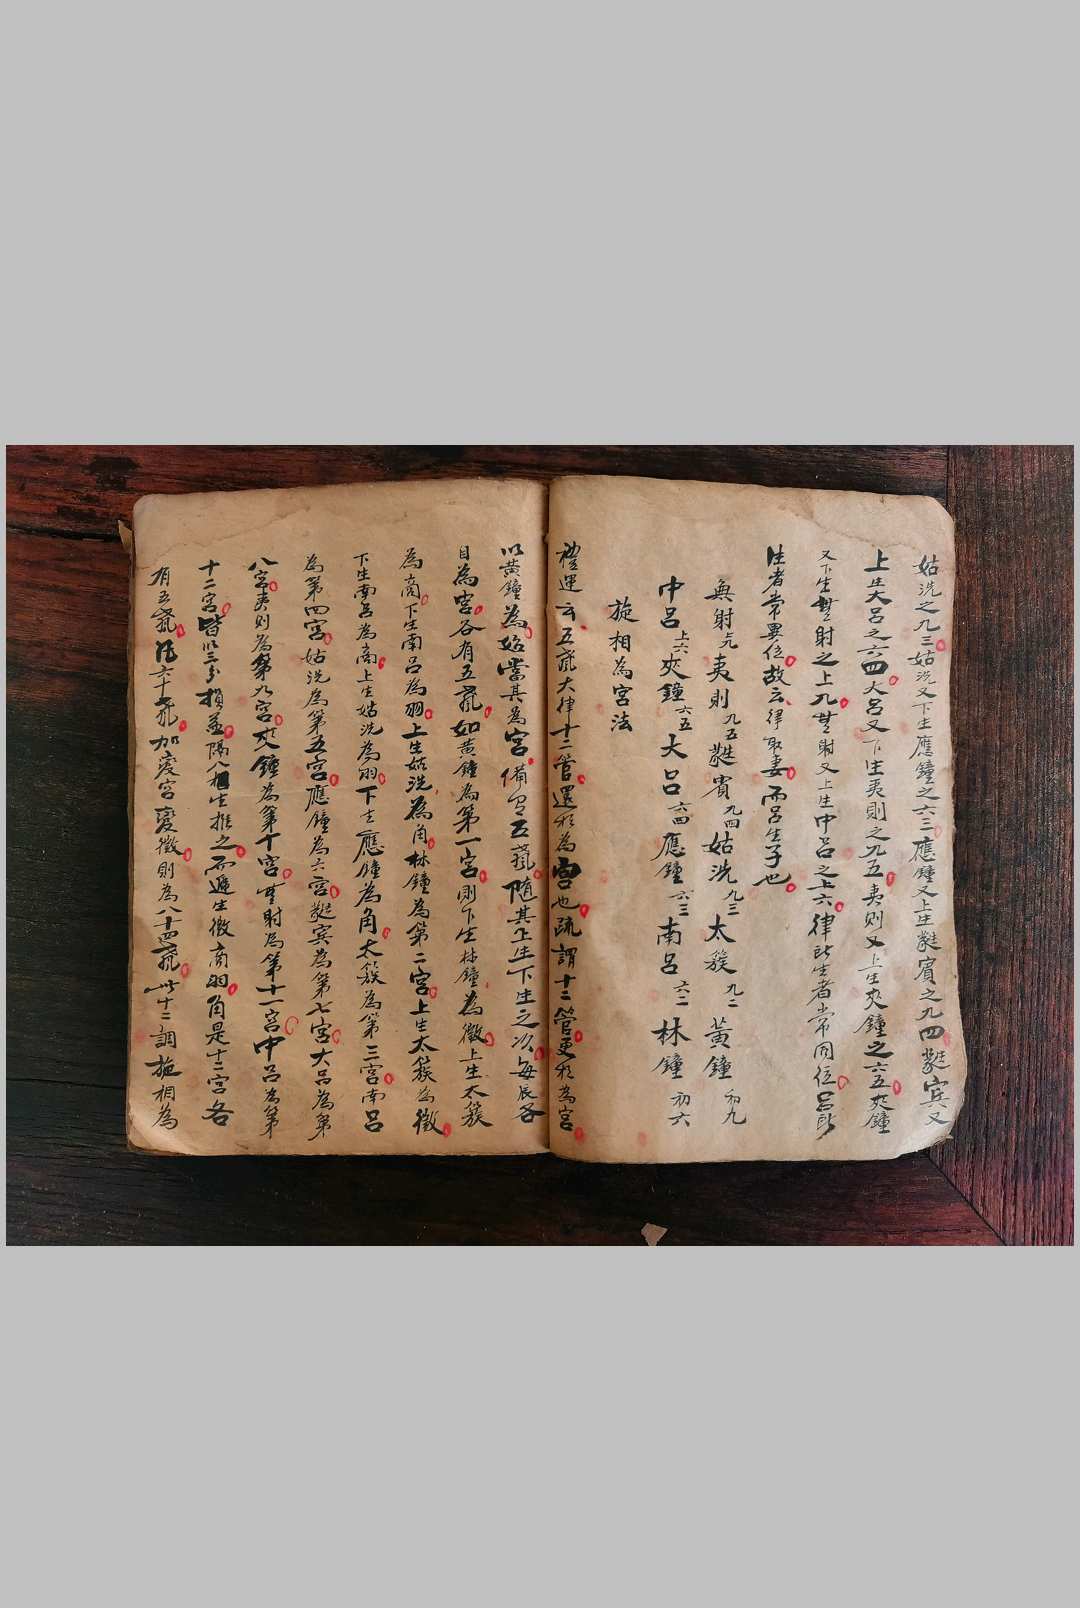 姑洗之九三姑洗又下生應鐘之六三應鐘又上生蕤賓之九四蕤賓又
上生大呂之六四大呂又下生夷則之九五夷則又上生夾鐘之六五夾鐘
又下生無射之上九無射又上生中呂之上六律所生者常同位呂所
生者常異位故云律取妻而呂生子也
無射上九夷則九五蕤賓九四姑洗九三太簇九二黃鐘初九
中呂上六夾鐘六五大呂六四應鐘六三南呂六二林鐘初六
旋相為宮法
禮運云五聲六律十二管還相為宮也疏謂十二管更相為宮
以黃鐘為始當其為宮備有五聲隨其上生下生之次每辰各
自為宮各有五聲如黃鐘為第一宮則下生林鐘為徵上生太簇
為商下生南呂為羽上生姑洗為角林鐘為第二宮上生太簇為徵
下生南呂為商上生姑洗為羽下生應鐘為角太簇為第三宮南呂
為第四宮姑洗為第五宮應鐘為六宮蕤賓為第七宮大呂為第
八宮夷則為第九宮夾鐘為第十宮無射為第十一宮中呂為第
十二宮皆以三分損益隔八相生推之而遞生徵商羽角是十二宮各
有五聲得六十聲加變宮變徵則為八十四聲此十二調旋相為